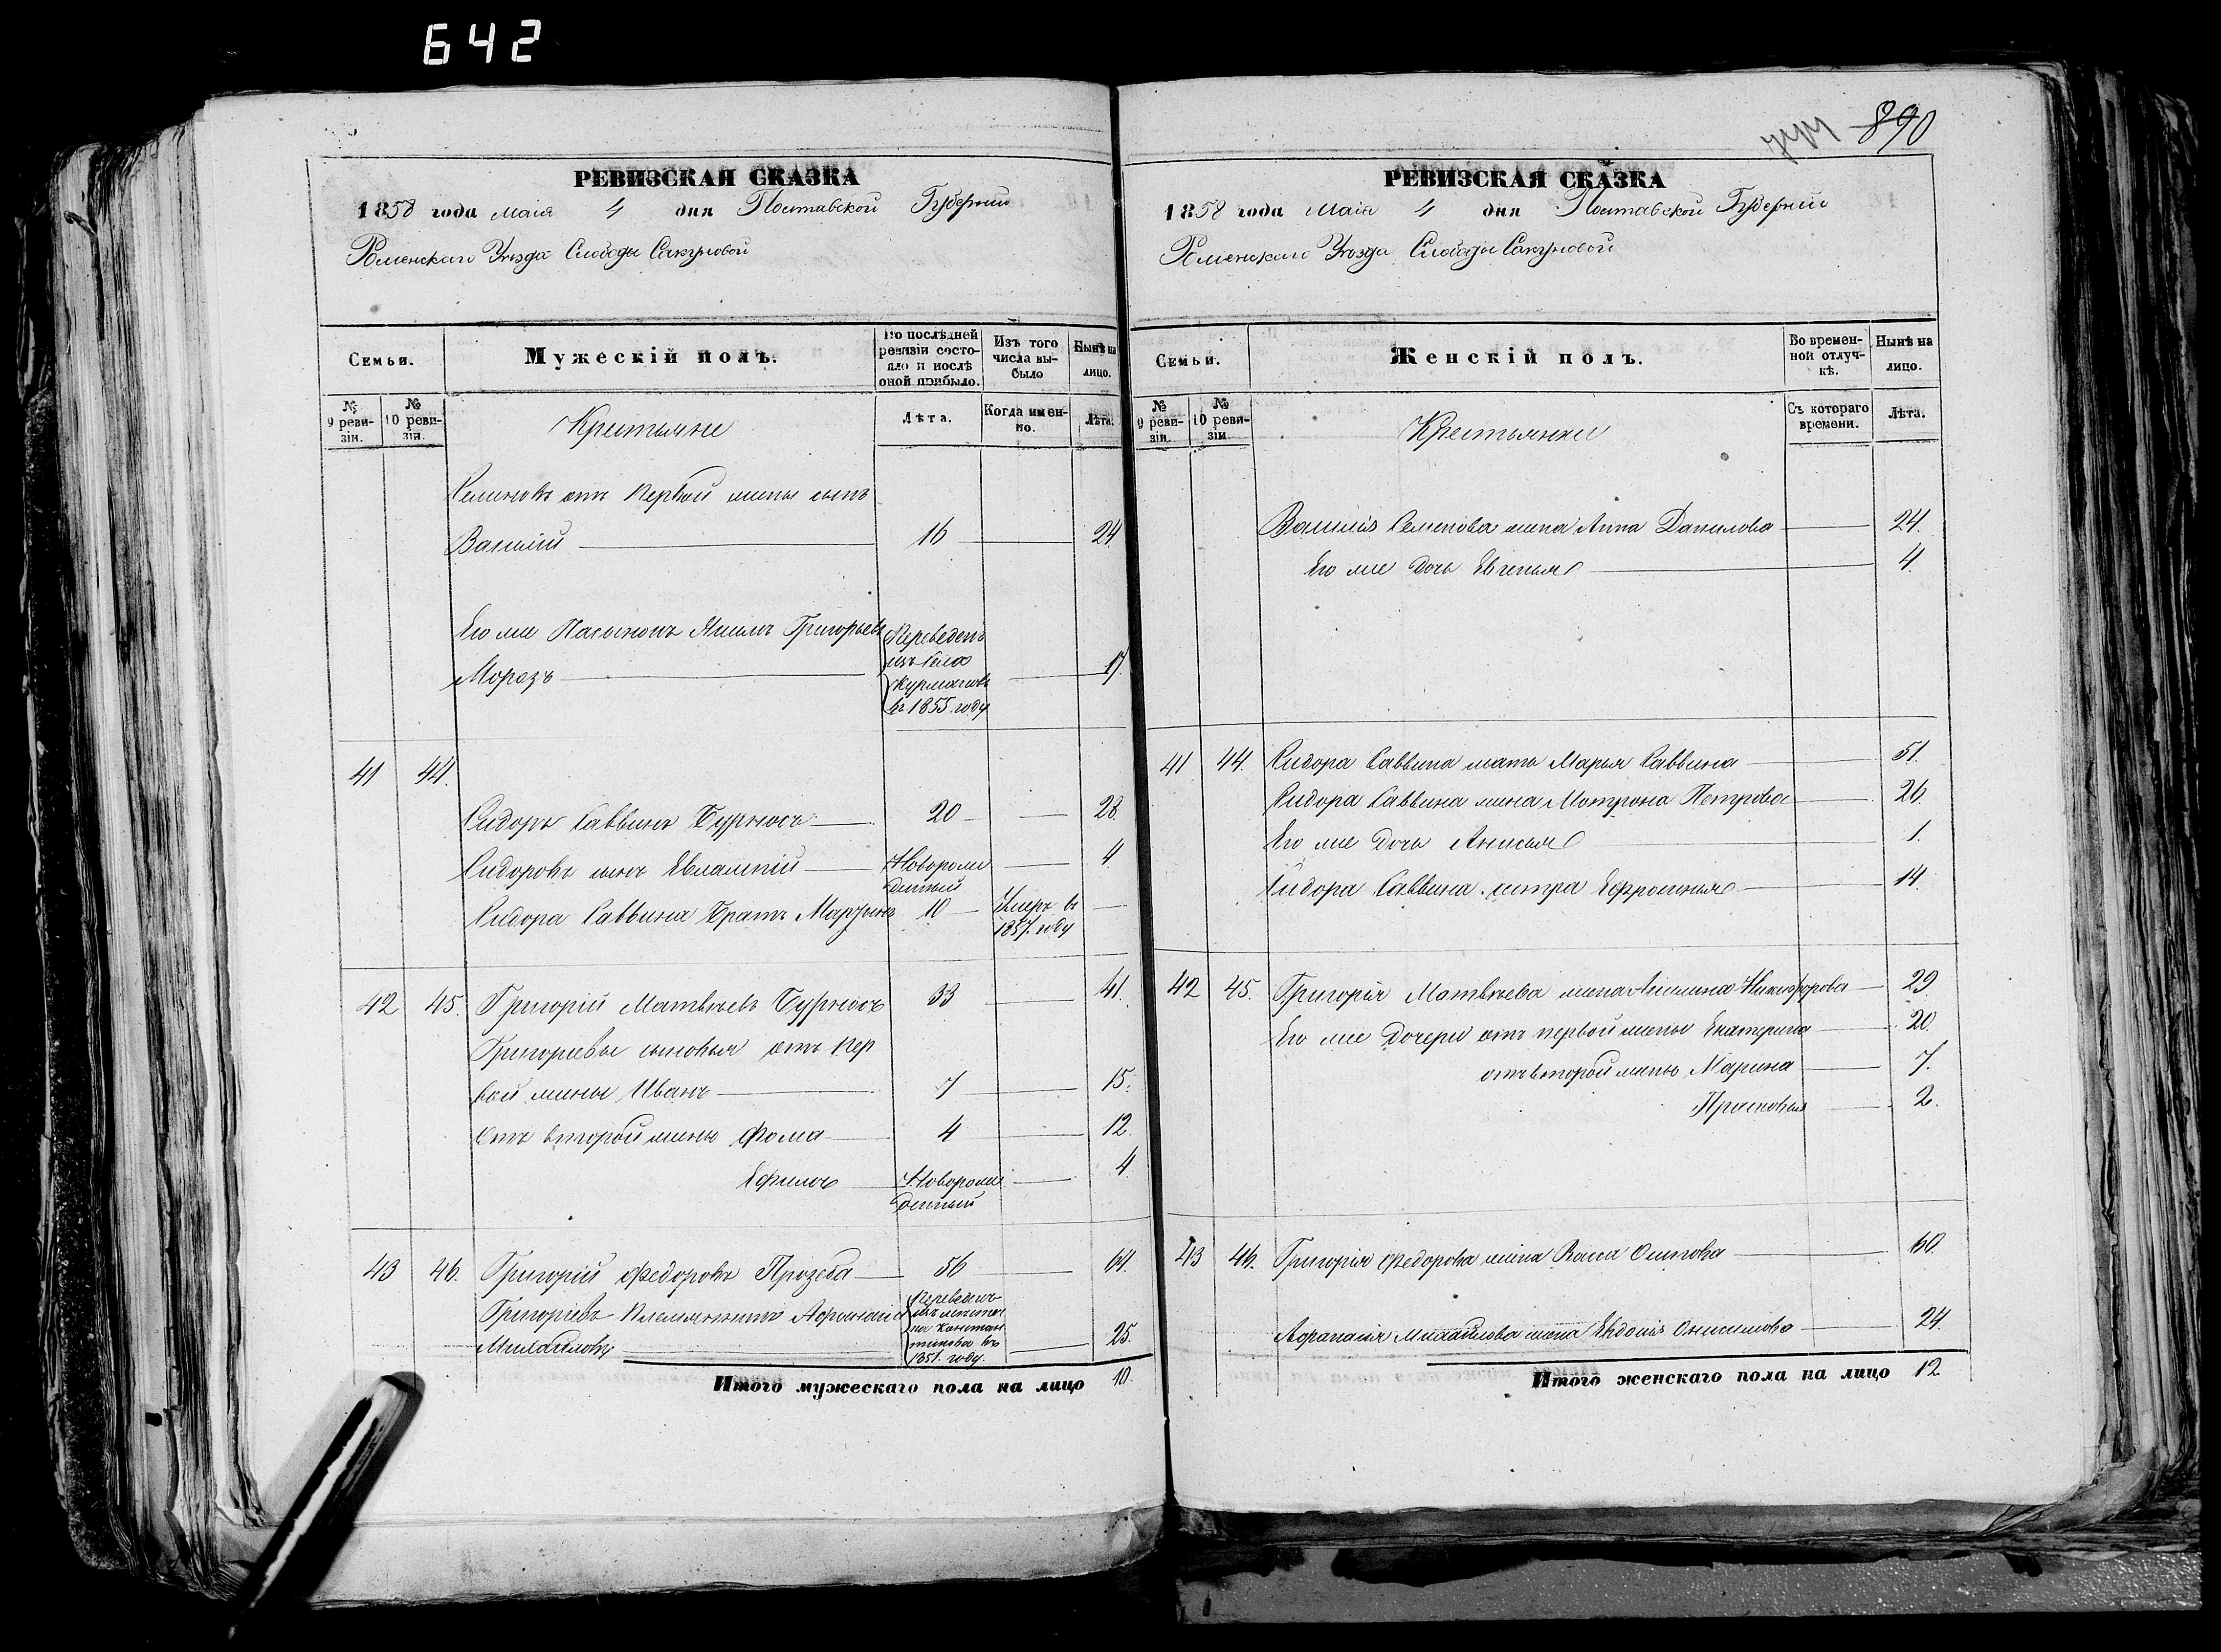 642
890
РЕВИЗСКАЯ СКАЗКА
1858 года маія 4 дня Полтавской Губерніи
Роменскаго Уѣзда Слободы Сакуновой
Семьи.
Мужескій полъ.
По послѣдней ревизіи состояло и послѣ оной прибыло.
Изъ того числа выбыло
Нынѣ на лицо.
№ 9 ревизіи.
№ 10 ревизіи.
Крестьяне
Лѣта.
Когда именно.
Лѣта.
Семеновъ отъ первой жены сынъ
Василій 16 24
Его же Пасынокъ Якимъ Григорьевъ
Морозъ 17
Переведенъ
изъ села
въ 1855 году
41 44.
Сидоръ Саввинъ Бурносъ 20 28.
Сидоровъ сынъ Евлампій Новорож
денный 4
Сидора Саввина Братъ Мартынъ 10 Умеръ въ
1857. году
42 45. Григорій Матвѣевъ Бурносъ 33 41.
Григорьевы сыновья отъ пер
вой жены Иванъ 7 15.
Отъ второй жены Фома 4 12.
Ефимъ Новорож
денный 4
43 46. Григорій Федоровъ Прозеба 56 64.
Григорьевъ племянникъ Афанасій
Михайловъ 25.
Переведенъ
изъ мѣстеч
ка Констан
тинова въ
1851. году.
Итого мужескаго пола на лицо 10.
РЕВИЗСКАЯ СКАЗКА
1858 года Маія 4 дня Полтавской Губерніи
Роменскаго Уѣзда Слободы Сакуновой
Семьи.
Женскій полъ.
Во временной отлучкѣ.
Нынѣ на лицо.
№ 9 ревизіи.
№ 10 ревизіи.
Крестьянки
Съ котораго времени.
Лѣта.
Василія Семенова жена Анна Данилова 24.
Его же дочь Евгенья 4.
41 44. Сидора Саввина мать Марья Саввина 51.
Сидора Саввина жена Мотрона Петрова 26.
Его же Дочь Анисья 1.
Сидора Саввина сестра Ефросинья 14.
42 45. Григорія Матвѣева жена Акилина Никифорова 29.
Его же Дочери отъ первой жены Екатерина 20.
отъ второй жены Марина 7.
Прасковья 2.
43 46. Григорія Федорова жена Васса Осипова 60.
Афанасія Михайлова жена Евдокія Онисимова 24.
Итого женскаго пола на лицо 12